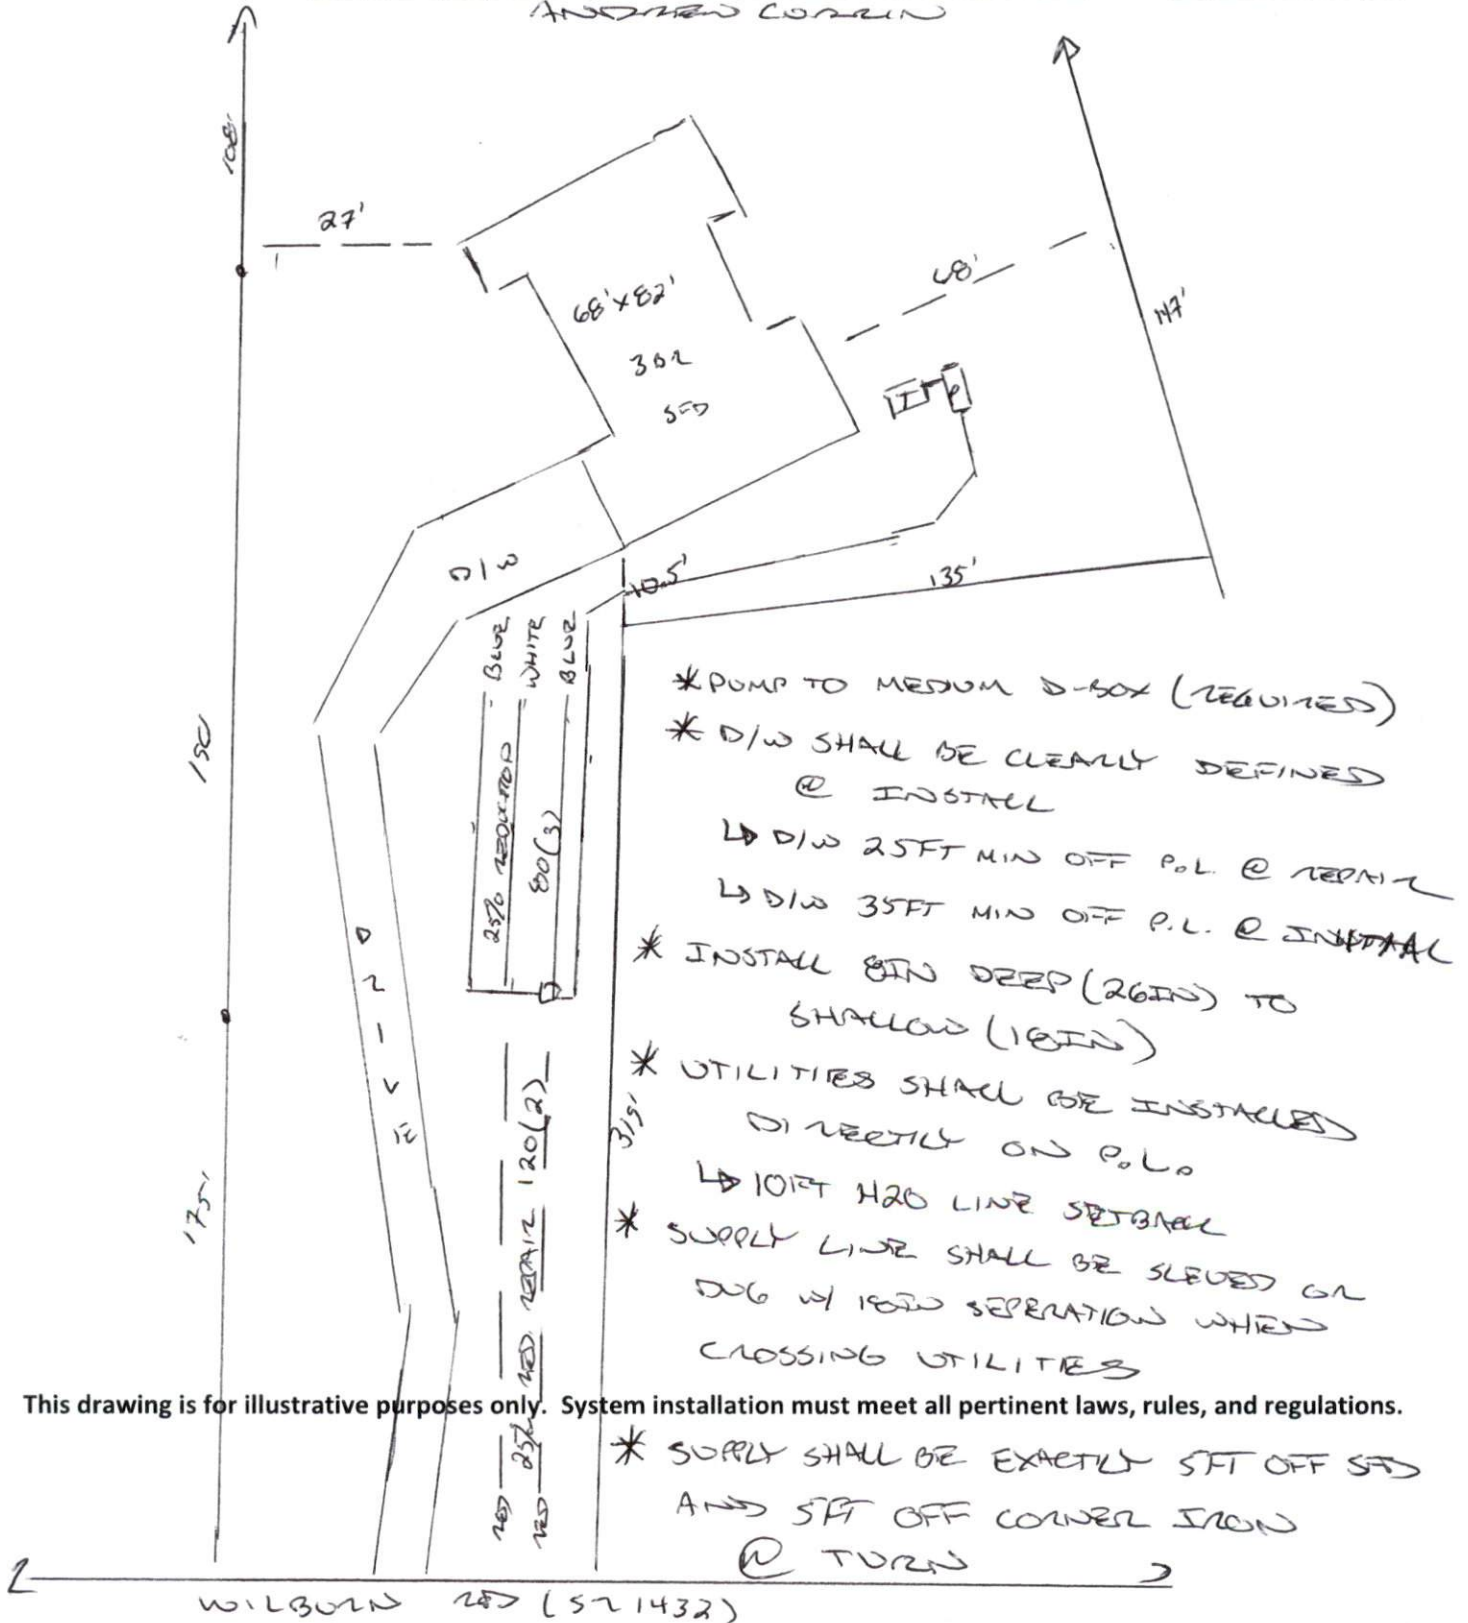 ANDREW CORRIN
108'
27'
68'
68'x82'
3BR
SFD
147'
T
P
D/W
10.5'
135'
BLUE
WHITE
BLUE
25% REDUCTION
80(3)
D
150'
DRIVE
175'
319'
RED
RED
25% RED REPAIR 120(2)
* PUMP TO MEDIUM D-BOX (REQUIRED)
* D/W SHALL BE CLEARLY DEFINED
@ INSTALL
↳ D/W 25FT MIN OFF P.L. @ REPAIR
↳ D/W 35FT MIN OFF P.L. @ INITIAL
* INSTALL 8IN DEEP (26IN) TO
SHALLOW (18IN)
* UTILITIES SHALL BE INSTALLED
DIRECTLY ON P.L.
↳ 10FT H2O LINE SETBACK
* SUPPLY LINE SHALL BE SLEVED OR
DUG W/ 18IN SEPERATION WHEN
CROSSING UTILITIES
This drawing is for illustrative purposes only. System installation must meet all pertinent laws, rules, and regulations.
* SUPPLY SHALL BE EXACTLY 5FT OFF SFD
AND 5FT OFF CORNER IRON
@ TURN
WILBURN RD (SR 1432)